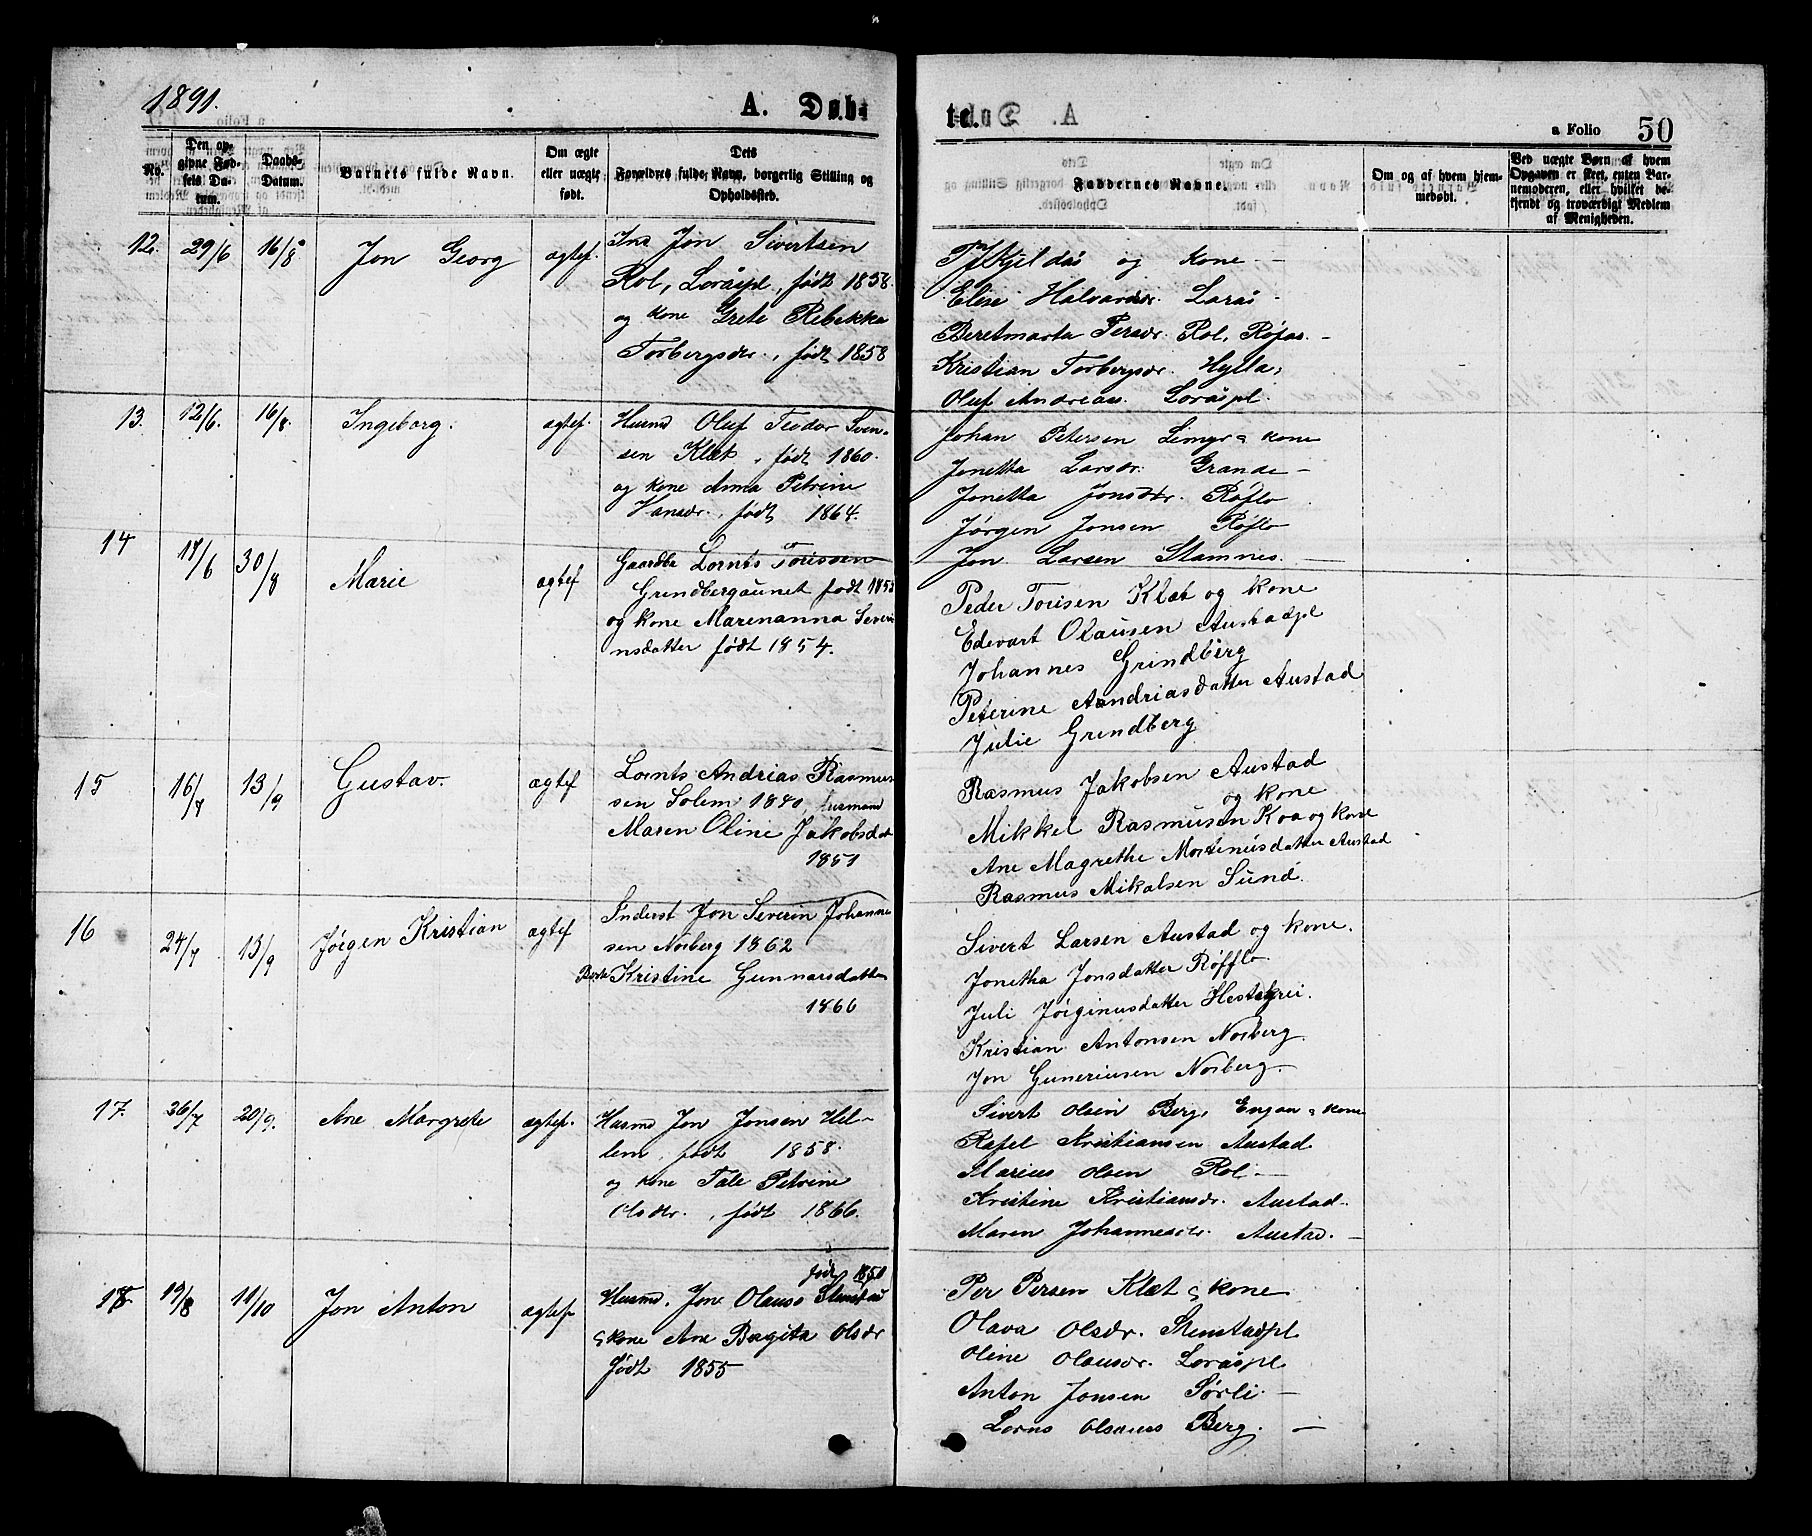 1891.
A. Døb-
te.
a Folio 50
No.
Den op-
givne Fød-
sels Da-
tum.
Daabs-
Datum.
Barnets fulde Navn.
Om ægte
eller uægte
født.
Dets
Forældres fulde Navn, borgerlig Stilling og
Opholdssted.
Faddernes Navne.
Om og af hvem hjem-
medøbt.
Ved uægte Børn af hvem
Opgaven er skeet, enten Bar-
nemoderen, eller hvilket be-
kjendt og troværdigt Medlem
af Menigheden.
12. 29/6 16/8 Jon Georg ægtef. Ins Jon Sivertsen
Rol, Loråspl, født 1858.
og kone Grete Rebekka
Torbergsdr., født 1858
Kjeldås og kone -
Elise Halvarsdr. Lorås -
Beretmarta Persdr. Rol, Røfas. -
Kristian Torbergsdr. Hylla,
Oluf Andreas. Loråspl.
13. 12/6. 16/8. Ingeborg. ægtef. Husmd Oluf Teodor Sven-
sen Klæt, født 1860.
og kone Anna Petrine
Hansdr., født 1864.
Johan Petersen Limyr & kone
Jonetta Larsdr. Grande -
Jonetta Jonsdtr. Røflo
Jørgen Jonsen Røflo
Jon Larsen Stamnes. -
14 17/6 30/8 Marie ægtef Gaardbr Lornts Torissen
Grindbergaunet født 185
og kone Marenanna Severi
nsdatter født 1854.
Peder Torisen Klæt og kone
Edevart Olausen Austadpl
Johannes Grindberg
Peterine Andriasdatter Austad
Julie Grindberg
15 16/7 13/9 Gustav. ægtef Lornts Andrias Rasmus
sen Solem 1840 husmand
Maren Oline Jakobsdat
1851
Rasmus Jakobsen Austad
og kone
Mikkel Rasmusen Koa og kone
Ane Magrethe Mortinusdatter Austad
Rasmus Mikalsen Sund.
16 24/7 13/9 Jørgen Kristian ægtef Inderst Jon Severin Johanne
sen Norberg 1862
Berte Kristine Gunnarsdatter
1866
Sivert Larsen Austad og kone.
Jonetha Jonsdatter Røfflo.
Juli Jørginusdatter Hestegrei.
Kristian Antonsen Norberg.
Jon Guneriusen Norberg -
17. 26/7 20/9. Ane Margrete ægtef. Husmd Jon Jonsen Hel-
lem, født 1858.
og kone Tale Petrine
Olsdr., født 1866.
Sivert Olsen Berg, Engan & kone
Rafel Kristiansen Austad
Marius Olsen Rol -
Kristine Kristiansdr. Austad.
Maren Johannesdr. Austad. -
18. 19/8 11/10 Jon Anton ægtef født 1850
Husmd. Jon Olauss Stenstad
& kone Ane Bergita Olsdr
født 1855
Per Persen Klæt & kone
Olava Olsdr. Stenstadpl
Oline Olausdr. Loråspl
Anton Jonsen Sørli. -
Lorns Olsauss Berg. -